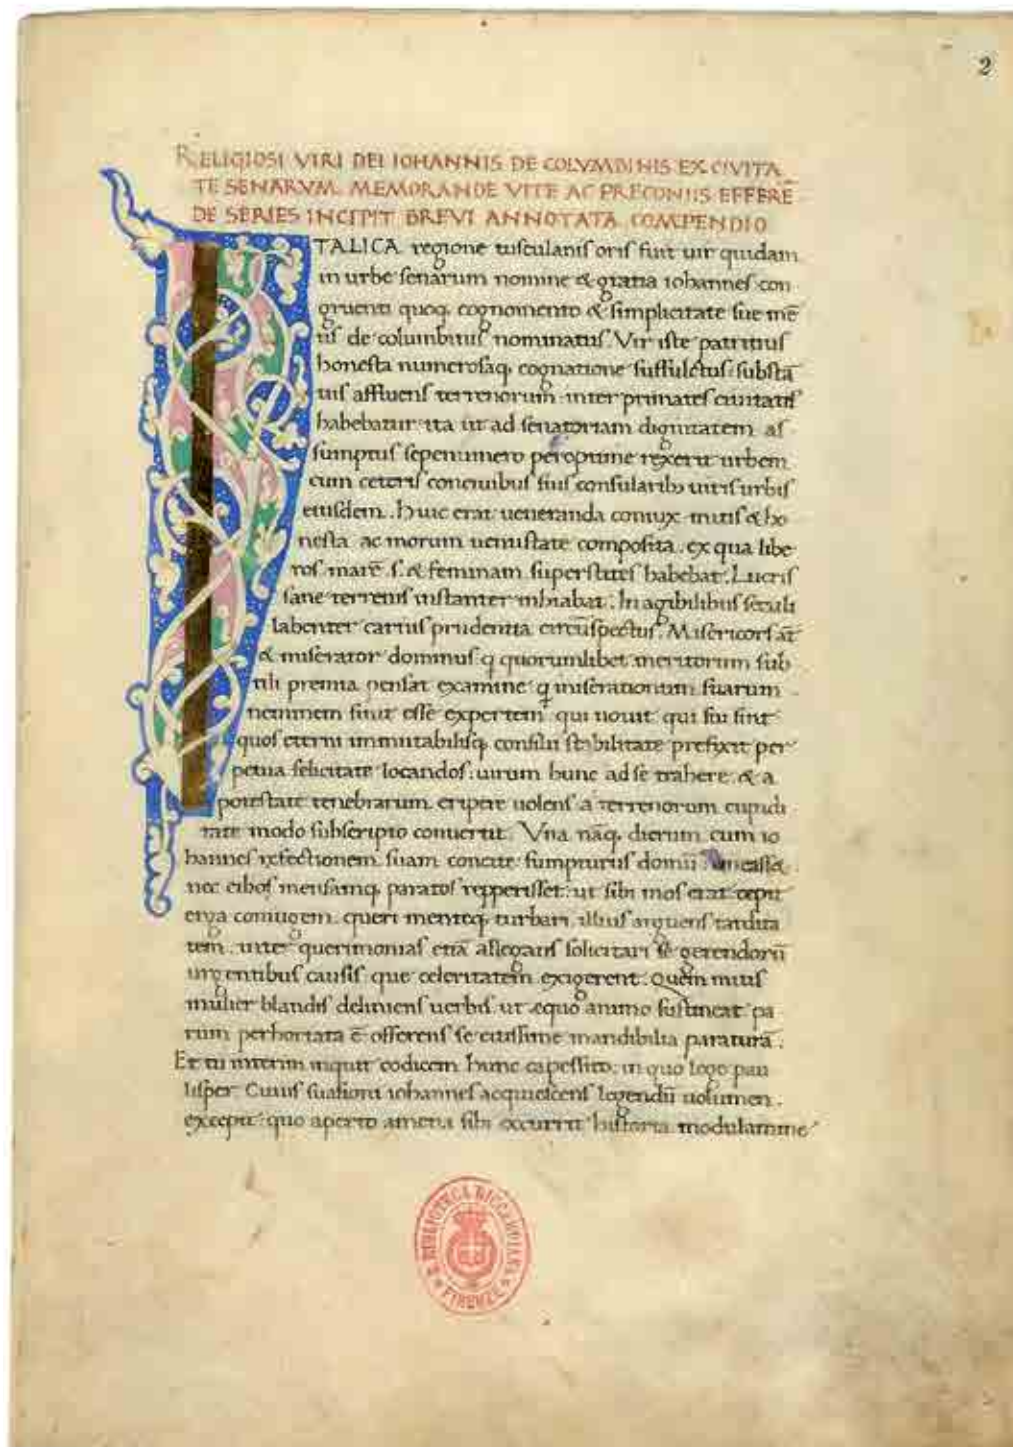 2
RELIGIOSI VIRI DEI IOHANNIS DE COLVMBINIS EX CIVITA
TE SENARVM. MEMORANDE VITE AC PRECONIIS EFFERĒ
DE SERIES INCIPIT BREVI ANNOTATA COMPENDIO
ITALICA regione tusculanis oris fuit uir quidam
in urbe senarum nomine & gratia iohannes con
gruenti quoq; cognomento & simplicitate sue mē
tis de columbinis nominatus. Vir iste patritius
honesta numerosaq; cognatione suffultus: substā
tiis affluens terrenorum inter primates ciuitatis
habebatur ita ut ad senatoriam dignitatem as
sumptus sepenumero peroptime rexerit urbem
cum ceteris conciuibus suis consularib; uiris urbis
eiusdem. Huic erat ueneranda coniux mitis & ho
nesta ac morum uenustate composita. ex qua libe
ros marē .s. & feminam superstites habebat. Lucris
sane terrenis instanter inhiabat. In agibilibus seculi
labenter cartis prudentia circūspectus. Misericors āt
& miserator dominus q quorumlibet meritorum sub
tili premia pensat examine q miserationum suarum
neminem sinit esse expertem qui nouit qui sui sint
quos eterni immutabilisq; consilii stabilitate prefixit per
petua felicitate locandos: uirum hunc ad se trahere & a
potestate tenebrarum eripere uolens a terrenorum cupidi
tate modo subscripto conuertit. Vna nāq; dierum cum io
hannes refectionem suam concite sumpturus domū
nec cibos mensamq; paratos repperisset: ut sibi mos erat cepit
erga coniugem queri menteq; turbari. illius arguens tardita
tem. inter querimonias etiā allegans solicitari se gerendorū
urgentibus causis que celeritatem exigerent. Quem mitis
mulier blandis deliniens uerbis ut equo animo sustineat pa
rum perhortata ē offerens se citissime mandibilia paraturā.
Et tu interim inquit codicem hunc capessito: in quo lego pau
lisper. Cuius suasioni iohannes acquiescens legendū uolumen
excepit: quo aperto amena sibi occurrit historia modulamine
R. BIBLIOTECA RICCARDIANA
FIRENZE